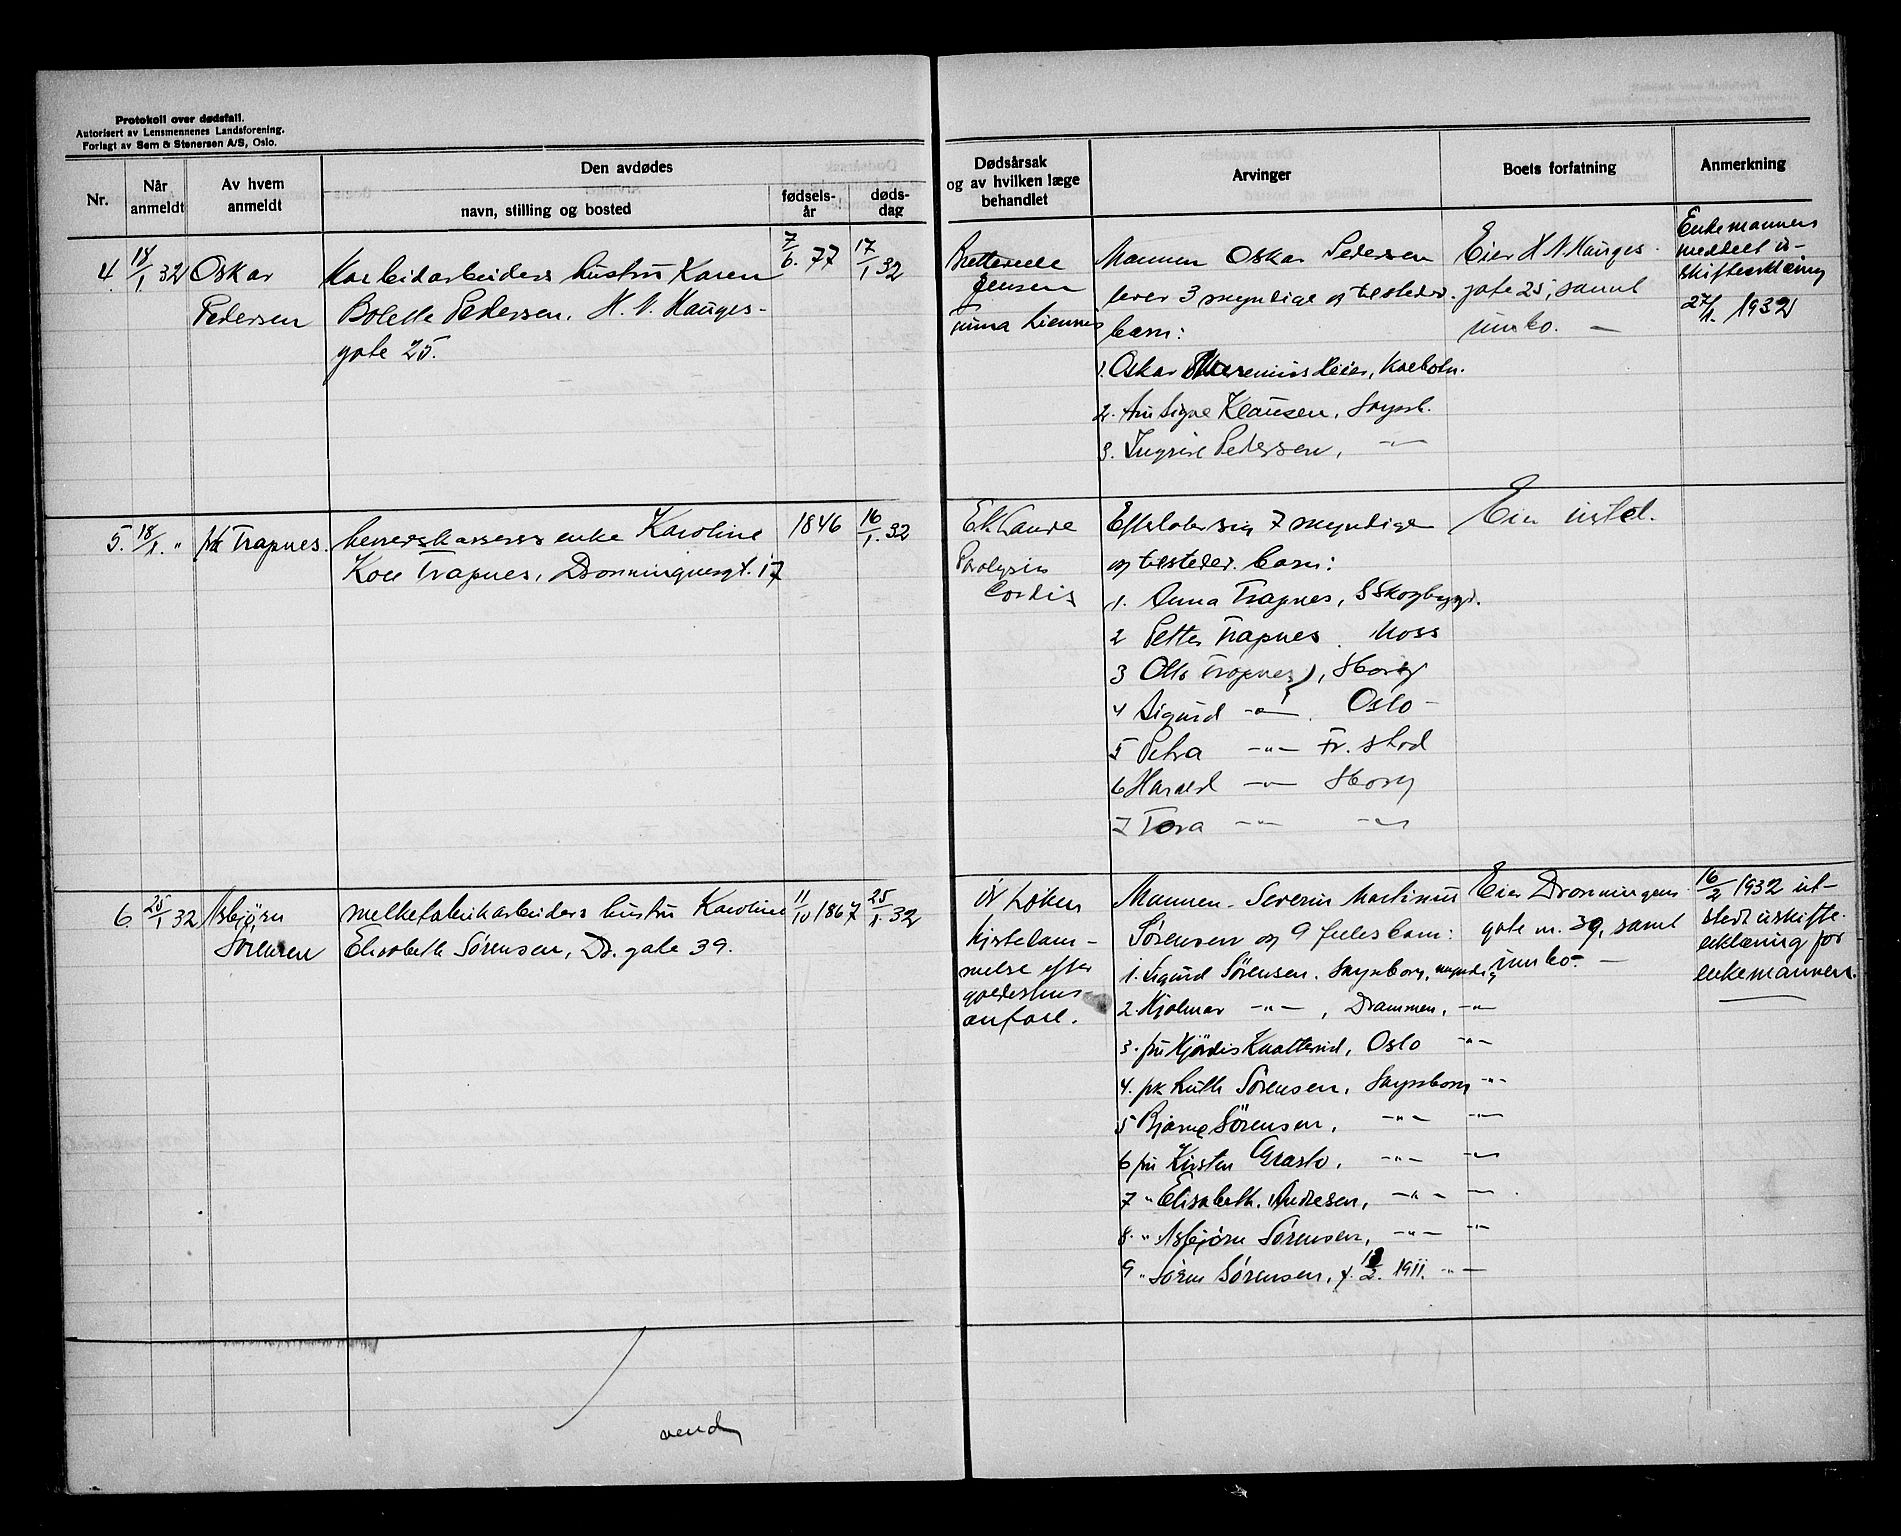 Protokoll over dødsfall.
Autorisert av Lensmennenes Landsforening.
Forlagt av Sem & Stenersen A/S, Oslo.
Nr.
Når
anmeldt
Av hvem
anmeldt
Den avdødes
navn, stilling og bosted
fødsels-
år
døds-
dag
Dødsårsak
og av hvilken læge
behandlet
Arvinger
Boets forfatning
Anmerkning
4. 18/1 32 Oskar
Pedersen
Karbidarbeiders hustru Karen
Bolette Pedersen, H. N. Hauges-
gate 25.
7/6. 77
17/1 32
Jensen
Mannen Oskar Pedersen
lever 3 myndige og tilstedev.
barn:
1. Oskar
2. Fru Signe Klausen, Sarpsb.
3. Ingrid Pedersen, -"-
Eier H N Hauges
gate 25, samt
innbo. —
Enkemannen
meddelt u-
skifteerklæring
27/1. 1932
5. 18/1. " frk Trapnes.
enke Karoline
Trapnes, Dronningensgt. 17
1846
16/1. 32
Paralysis
Cordis
Efterlater sig 7 myndige
og tilstedev. barn:
1. Anna Trapnes,
2 Petter Trapnes. Moss
3 Otto Trapnes,
4 Sigurd -"- . Oslo -
5 Petra -"- Fr. stad
6 Harald -"-
7 Tora -"- -"-
Eier intet.
6. 25/1 32 Asbjørn
Sørensen
melkefabrikarbeiders hustru Karoline
Elisabeth Sørensen, Dr. gate 39.
11/10 1867
25/1 32
dr Løken
-
melse efter
-
anfall.
Mannen Severin Martinius
Sørensen og 9 felles barn:
1. Sigurd Sørensen. Sarpsborg, myndig
2. Hjalmar -"- , Drammen, -"-
3. fru Hjördis Knatterud, Oslo -"-
4. frk Ruth Sörensen, Sarpsborg -"-
5 Bjarne Sörensen, -"- -"-
6 fru Kirsten -"- -"-
7 " Elisabeth Andresen, -"- -"-
8. " Asbjørn Sørensen, -"- -"-
9 " Sørensen, f. 1911. "-
Eier Dronningens
gate nr. 39, samt
innbo. —
16/2 1932 ut-
stedt uskifte-
erklæring for
enkemannen.
vend